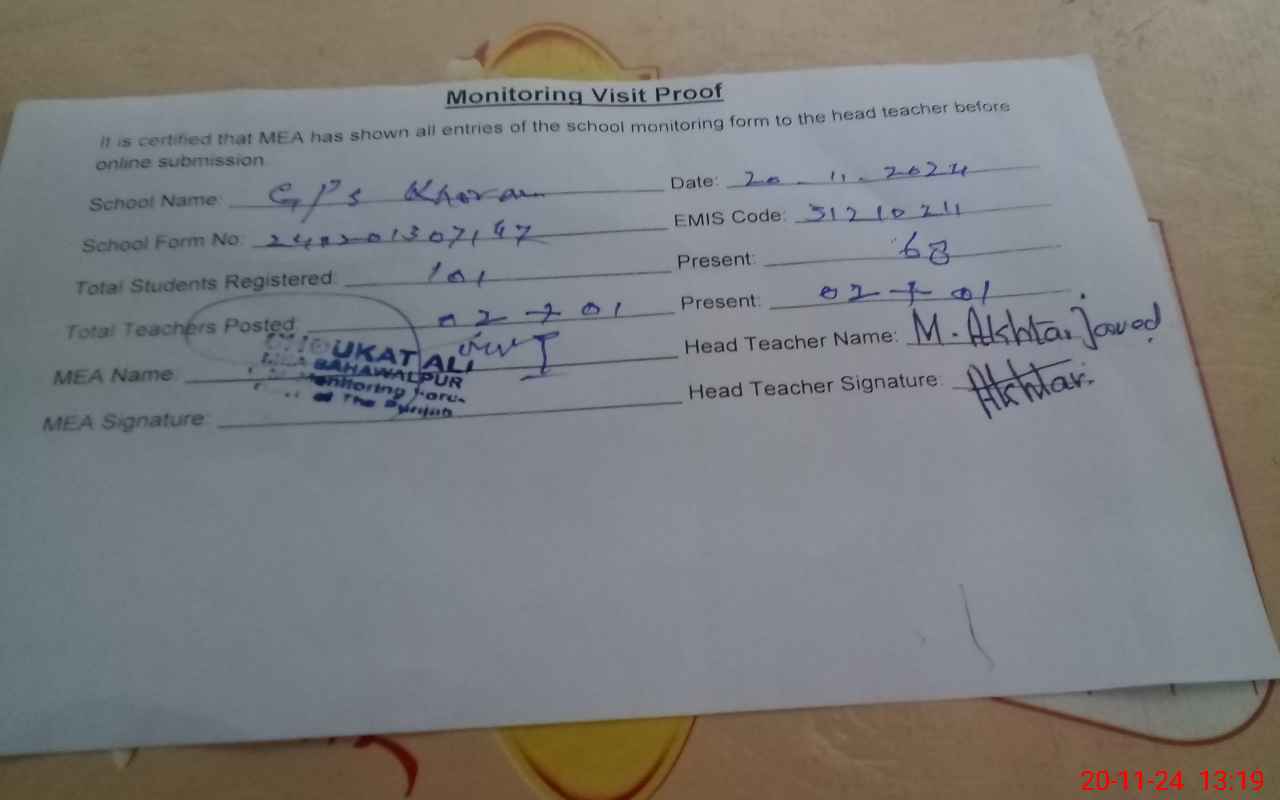 Monitoring Visit Proof
It is certified that MEA has shown all entries of the school monitoring form to the head teacher before
online submission.
School Name: GPS Date: 20-11-2024
School Form No: EMIS Code: 31210211
Total Students Registered: 101 Present: 68
Total Teachers Posted: 02 + 01 Present: 02 + 01
MEA Name: Head Teacher Name: M. Akhtar Javed
MEA Signature: Head Teacher Signature: Akhtar.
SHOUKAT ALI
MEA BAHAWALPUR
Monitoring Force
of The Punjab
20-11-24 13:19